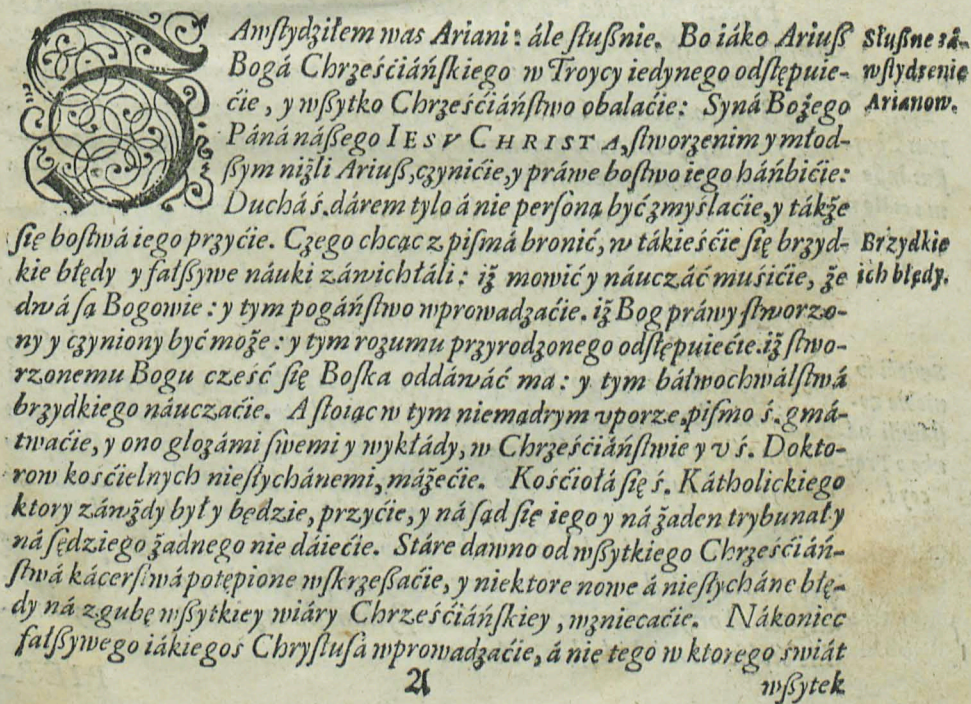 ZAwſtydźiłem was Ariani: ále ſłußnie. Bo iáko Ariuß
Bogá Chrześćiáńſkiego w Troycy iedynego odſtępuie-
ćie, y wßytko Chrześćiáńſtwo obalaćie: Syná Bożego
Páná náßego IESV CHRISTA, ſtworzenim y młod-
ßym niżli Ariuß, czynićie, y práwe boſtwo iego háńbićie:
Duchá ś. dárem tylo á nie perſoną być zmyślaćie, y tákże
ſię boſtwá iego przyćie. Czego chcąc z piſmá bronić, w tákieśćie ſię brzyd-
kie błędy y fałßywe náuki záwichłáli: iż mowić y náuczáć muśićie, że
dwá ſą Bogowie: y tym pogáńſtwo wprowadzaćie. iż Bog práwy ſtworzo-
ny y czyniony być może: y tym rozumu przyrodzonego odſtępuiećie. iż ſtwo-
rzonemu Bogu cześć ſię Boſka oddáwáć ma: y tym báłwochwálſtwá
brzydkiego náuczaćie. A ſtoiąc w tym niemądrym vporze, piſmo ś. gmá-
twaćie, y ono glozámi ſwemi y wykłády, w Chrześćiáńſtwie y v ś. Dokto-
row kośćielnych nieſłychánemi, máżećie. Kośćiołá ſię ś. Kátholickiego
ktory záwżdy był y będzie, przyćie, y ná ſąd ſię iego y ná żaden trybunał y
ná ſędziego żadnego nie dáiećie. Stáre dawno od wßytkiego Chrześćiáń-
ſtwá kácerſtwá potępione wſkrzeßaćie, y niektore nowe á nieſłycháne błę-
dy ná zgubę wßytkiey wiáry Chrześćiáńſkiey, wzniecaćie. Nákoniec
fałßywego iákiegoś Chryſtuſá wprowadzaćie, á nie tego w ktorego świát
A
wßytek
Słußne zá-
wſtydzenie
Arianow.
Brzydkie
ich błędy.